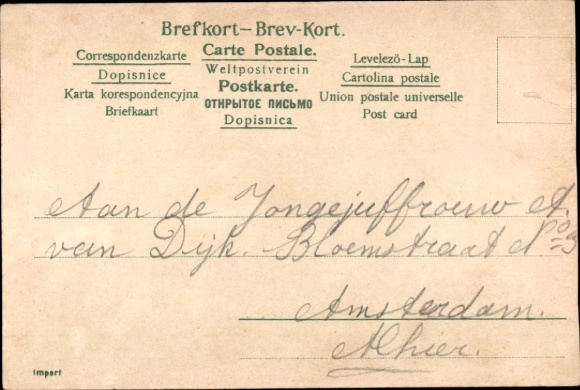 Brefkort–Brev-Kort.
Correspondenzkarte
Dopisnice
Karta korespondencyjna
Briefkaart
Carte Postale.
Weltpostverein
Postkarte.
ОТКРЫТОЕ ПИСЬМО
Dopisnica
Levelezö-Lap
Cartolina postale
Union postale universelle
Post card
Aan de Jongejuffrouw A.
van Dijk. Bloemstraat
Amsterdam.
Alhier.
Import